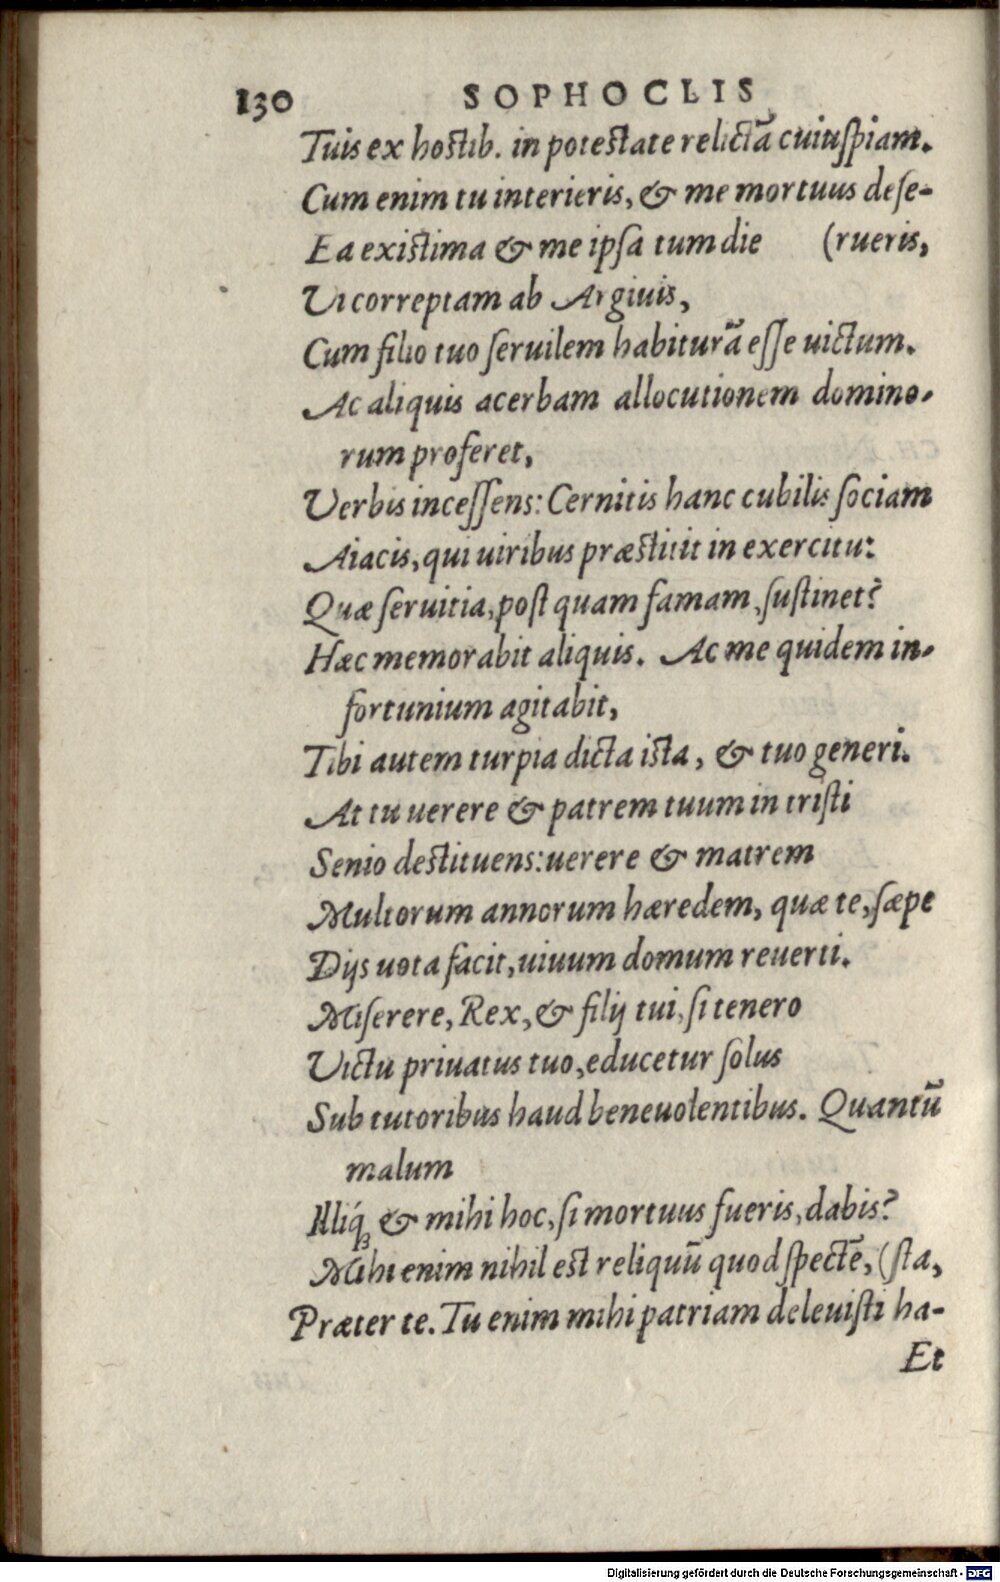 130 SOPHOCLIS
Tuis ex hostib. in potestate relictā cuiuspiam.
Cum enim tu interieris, & me mortuus dese-
Ea existima & me ipsa tum die (rueris,
Vi correptam ab Argiuis,
Cum filio tuo seruilem habiturā esse uictum.
Ac aliquis acerbam allocutionem domino-
rum proferet,
Verbis incessens: Cernitis hanc cubilis sociam
Aiacis, qui uiribus præstitit in exercitu:
Quæ seruitia, post quam famam, sustinet?
Hæc memorabit aliquis. Ac me quidem in-
fortunium agitabit,
Tibi autem turpia dicta ista, & tuo generi.
At tu uerere & patrem tuum in tristi
Senio destituens: uerere & matrem
Multorum annorum hæredem, quæ te, sæpe
Dijs uota facit, uiuum domum reuerti.
Miserere, Rex, & filij tui, si tenero
Victu priuatus tuo, educetur solus
Sub tutoribus haud beneuolentibus. Quantū
malum
Illiq́ꝫ & mihi hoc, si mortuus fueris, dabis?
Mihi enim nihil est reliquū quod spectē, (sta,
Præter te. Tu enim mihi patriam deleuisti ha-
Et
Digitalisierung gefördert durch die Deutsche Forschungsgemeinschaft - DFG